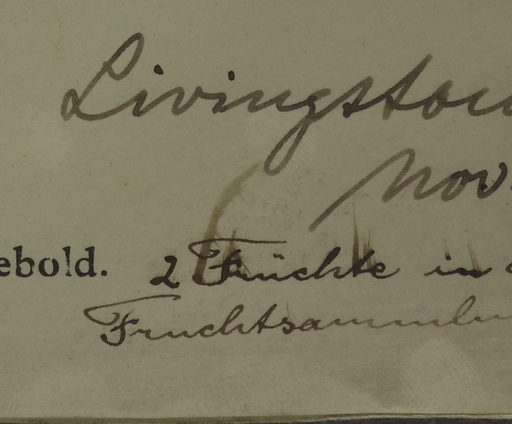 Livingstou
Nov.
ebold. 2 Früchte in
Fruchtsammlu